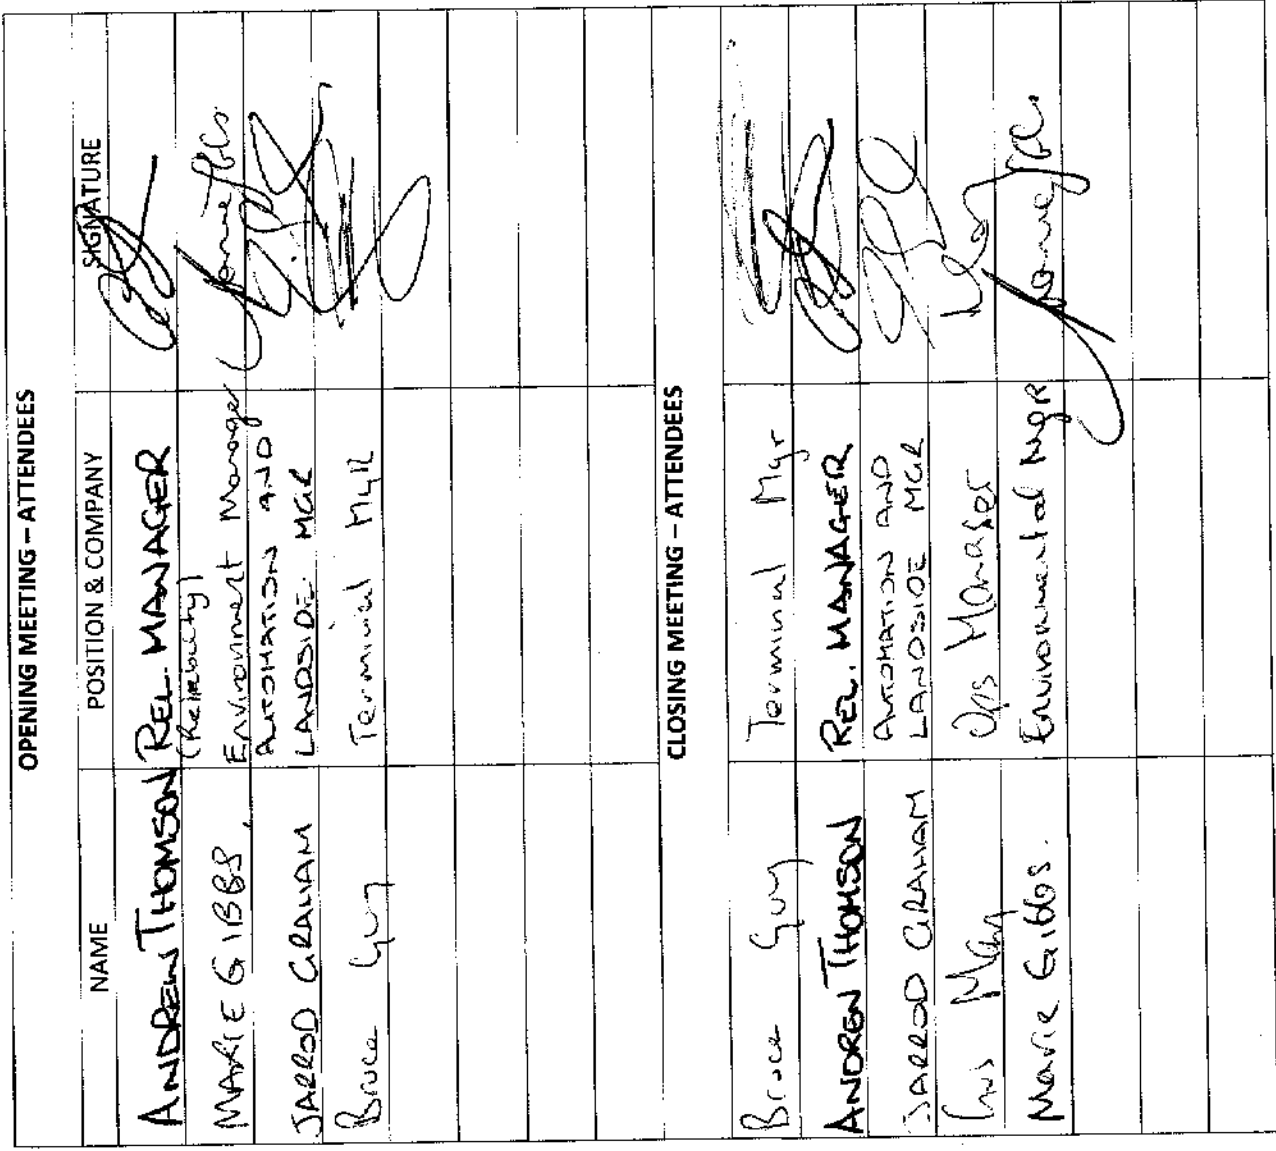 OPENING MEETING – ATTENDEES
NAME POSITION & COMPANY SIGNATURE
ANDREW THOMSON REL. MANAGER
(Reliability)
MARIE GIBBS Environment Manager
AUTOMATION AND
JARROD GRAHAM LANDSIDE MGR
Bruce Guy Terminal MgR
CLOSING MEETING – ATTENDEES
Bruce Guy Terminal Mgr
ANDREW THOMSON REL. MANAGER
AUTOMATION AND
JARROD GRAHAM LANDSIDE MGR
Ops Manager
Marie Gibbs. Environmental MgR